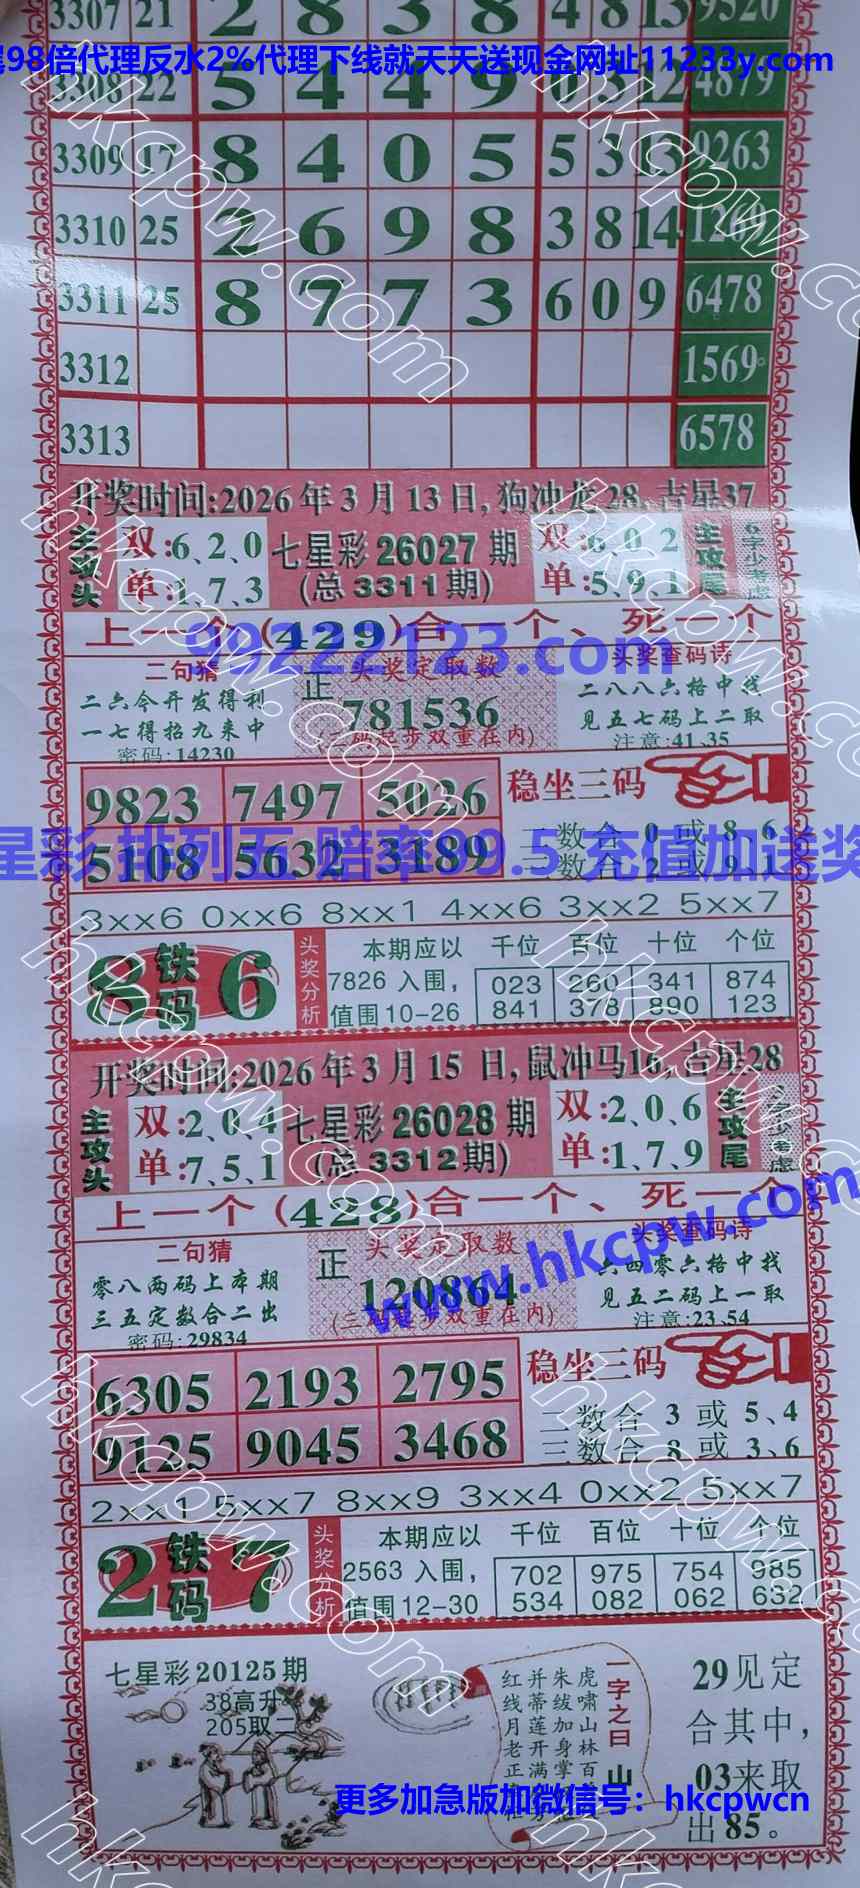 3307 21 2 8 3 8 4 8 13 9520
尾98倍代理反水2%代理下线就天天送现金网址11233y.com
3308 22 5 4 4 9 0 5 12 4879
3309 17 8 4 0 5 5 3 13 9263
3310 25 2 6 9 8 3 8 14 126
3311 25 8 7 7 3 6 0 9 6478
3312 1569
3313 6578
开奖时间:2026年3月13日,狗冲龙28,吉星37
主攻头
双:6、2、0
单:1、7、3
七星彩26027期
(总3311期)
双:6、0、2
单:5、9、1
主攻尾
上一个(429)合一个、死一个
99222123.com
二句猜
二六令开发得利
一七得招九来中
密码:14230
正
头奖定取数
781536
(二码起步双重在内)
头奖查码诗
二八八六格中找
见五七码上二取
注意:41、35
9823 7497 5026
5108 5632 3189
稳坐三码
二数合 0或8、6
三数合 2或9、1
星彩 排列五 赔率99.5 充值加送奖
3xx6 0xx6 8xx1 4xx6 3xx2 5xx7
8 铁码 6
头奖分析
本期应以
7826入围，
值围10-26
千位 百位 十位 个位
023 260 341 874
841 378 890 123
开奖时间:2026年3月15日,鼠冲马16,吉星28
主攻头
双:2、0、4
单:7、5、1
七星彩26028期
(总3312期)
双:2、0、6
单:1、7、9
主攻尾
上一个(428)合一个、死一个
www.hkcpw.com
二句猜
零八两码上本期
三五定数合二出
密码:29834
正
头奖定取数
120864
(三码起步双重在内)
头奖查码诗
六四零六格中找
见五二码上一取
注意:23、54
6305 2193 2795
9125 9045 3468
稳坐三码
二数合 3或5、4
三数合 8或3、6
2xx1 5xx7 8xx9 3xx4 0xx2 5xx7
2 铁码 7
头奖分析
本期应以
2563入围，
值围12-30
千位 百位 十位 个位
702 975 754 985
534 082 062 632
七星彩20125期
38高升
205取二
一字之曰 山
虎啸山林百
朱绂加身掌
并蒂莲开满
红线月老正
29见定
合其中，
03来取
出85。
更多加急版加微信号：hkcpwcn
hkcpw.com
hkcpw.com
hkcpw.com
hkcpw.com